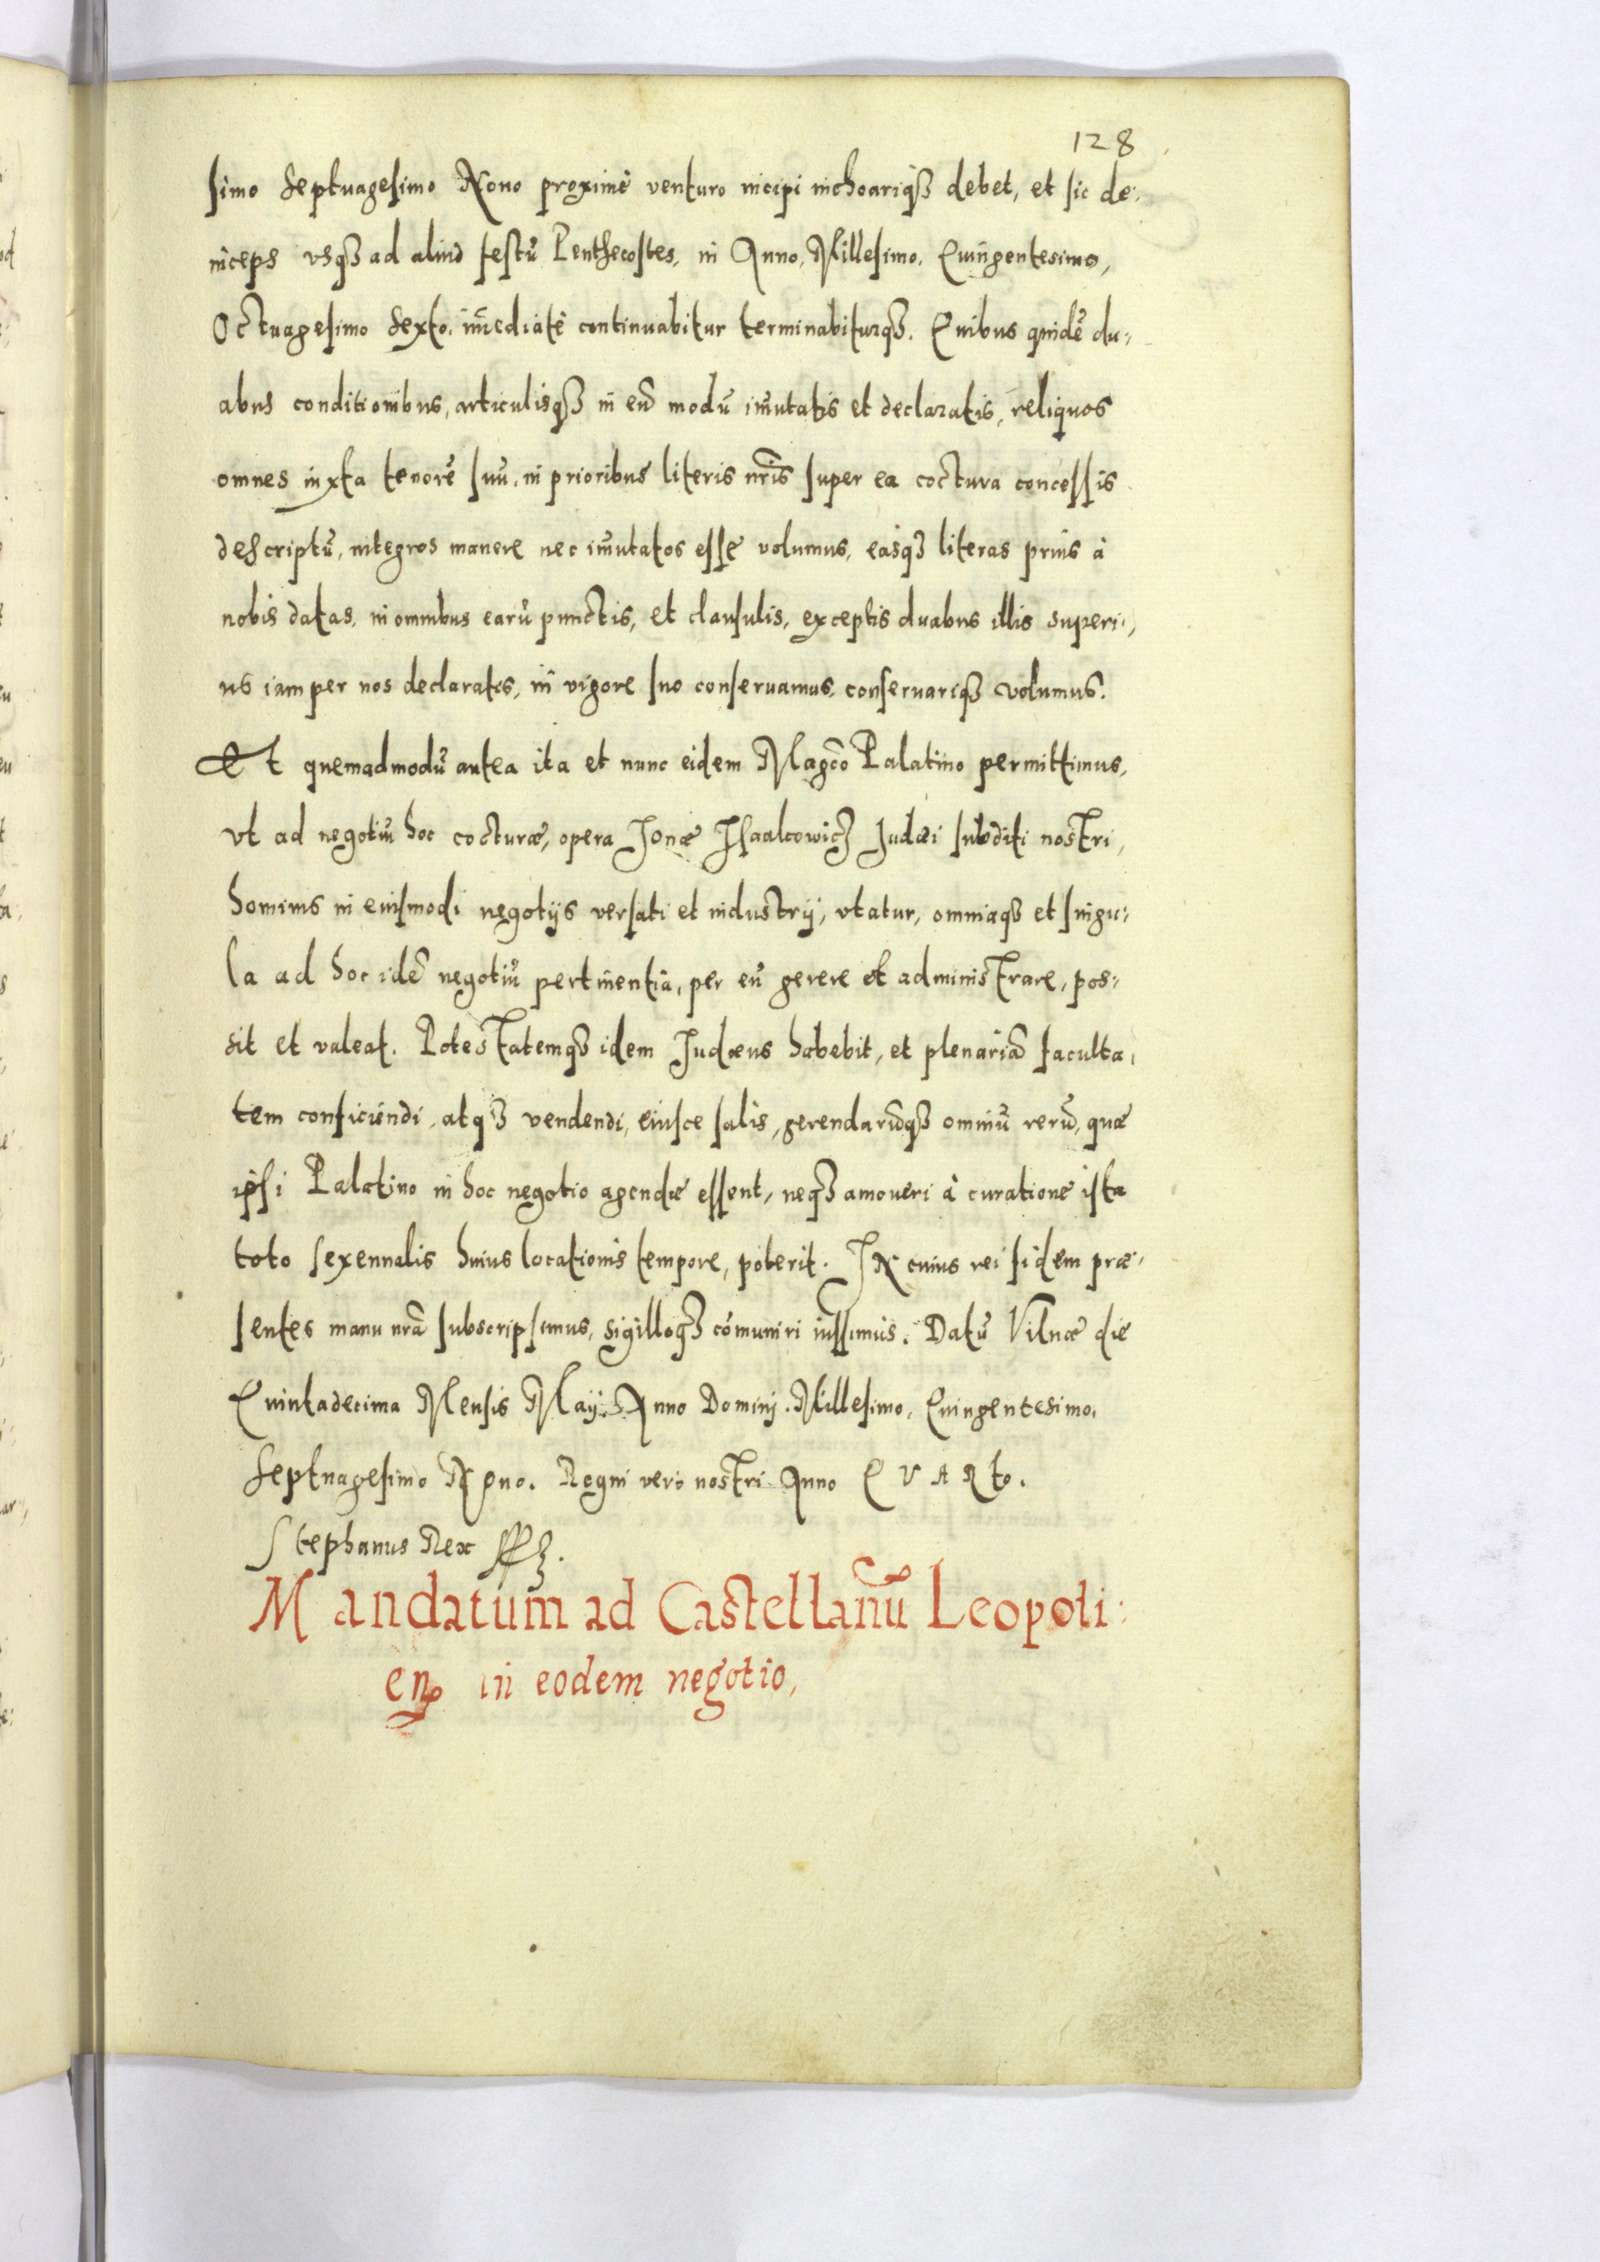 128
simo septuagesimo Nono proximè venturo incipi inchoariq3 debet, et sic de:
inceps vsq3 ad aliud festũ Penthecostes, in Anno, Millesimo, Quingentesimo,
Octuagesimo sexto, im̃ediatè continuabitur terminabiturq3. Quibus quidẽ du:
abus conditionibus, articulisq3 in eũ modũ im̃utatis et declaratis, reliquos
omnes iuxta tenorẽ suũ, in prioribus literis nr̃is super ea coctura concessis
descriptũ, integros manere nec im̃utatos esse volumus, easq3 literas prius à
nobis datas, in omnibus earũ punctis, et clausulis, exceptis duabus illis superi:,
us iam per nos declaratis, in vigore suo conseruamus, conseruariq3 volumus.
Et quemadmodũ antea ita et nunc eidem Mag̃co Palatino permittimus,
vt ad negotiũ hoc cocturæ, opera Jonæ Isaakowicz Judæi subditi nostri,
hominis in eiusmodi negotijs versati et industrij, vtatur, omniaq3 et singu:
la ad hoc idẽ negotiũ pertinentia, per eũ gerere et administrare, pos:
sit et valeat. Potestatemq3 idem Judæus habebit, et plenariã faculta,
tem conficiendi, atq3 vendendi, eiusce salis, gerendarũq3 omniũ rerũ, quæ
ipsi Palatino in hoc negotio agendæ essent, neq3 amoueri à curatione ista
toto sexennalis huius locationis tempore, poterit. IN cuius rei fidem præ:
sentes manu nr̃a subscripsimus, sigilloq3 com̃uniri iussimus. Datũ Vilnæ die
Quintadecima Mensis Maij. Anno Domini. Millesimo, Quingentesimo,
septuagesimo Nono. Regni vero nostri Anno QVARto.
Stephanus Rex ssz.
Mandatum ad Castellanũ Leopoli:
eñ in eodem negotio,